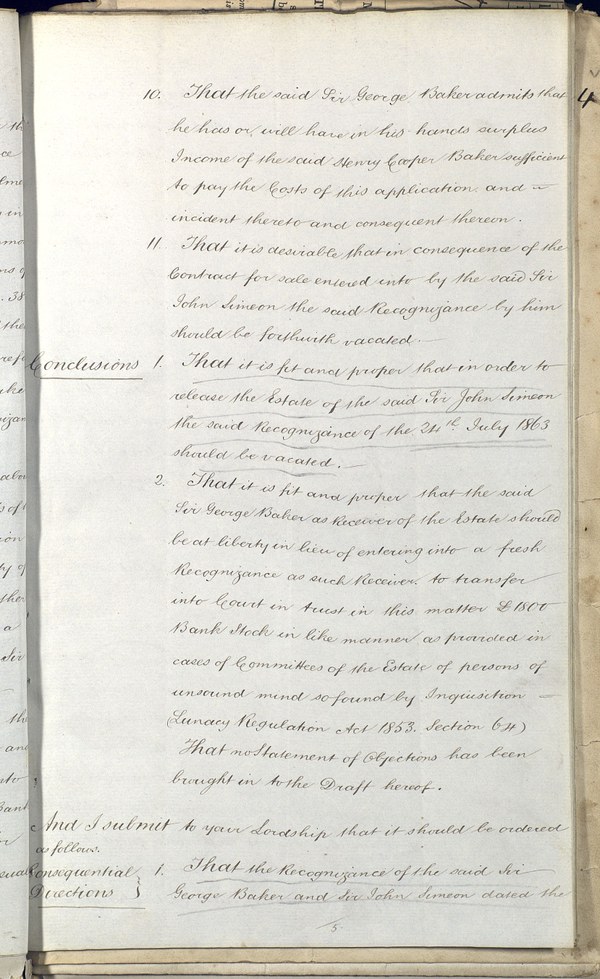 10. That the said Sir George Baker admits that
he has or will have in his hands surplus
Income of the said Henry Cooper Baker sufficient
to pay the Costs of this application and
incident thereto and consequent thereon.
11. That it is desirable that in consequence of the
Contract for sale entered into by the said Sir
John Simeon the said Recognizance by him
should be forthwith vacated.
Conclusions 1. That it is fit and proper that in order to
release the Estate of the said Sir John Simeon
the said Recognizance of the 24th July 1863
should be vacated.
2. That it is fit and proper that the said
Sir George Baker as Receiver of the Estate should
be at liberty in lieu of entering into a fresh
Recognizance as such Receiver, to transfer
into Court in trust in this matter £1800
Bank Stock in like manner as provided in
cases of Committees of the Estate of persons of
unsound mind so found by Inquisition
(Lunacy Regulation Act 1853. Section 64)
That no Statement of Objections has been
brought in to the Draft hereof.
And I submit to your Lordship that it should be ordered
as follows.
Consequential Directions } 1. That the Recognizance of the said Sir
George Baker and Sir John Simeon dated the
5
4